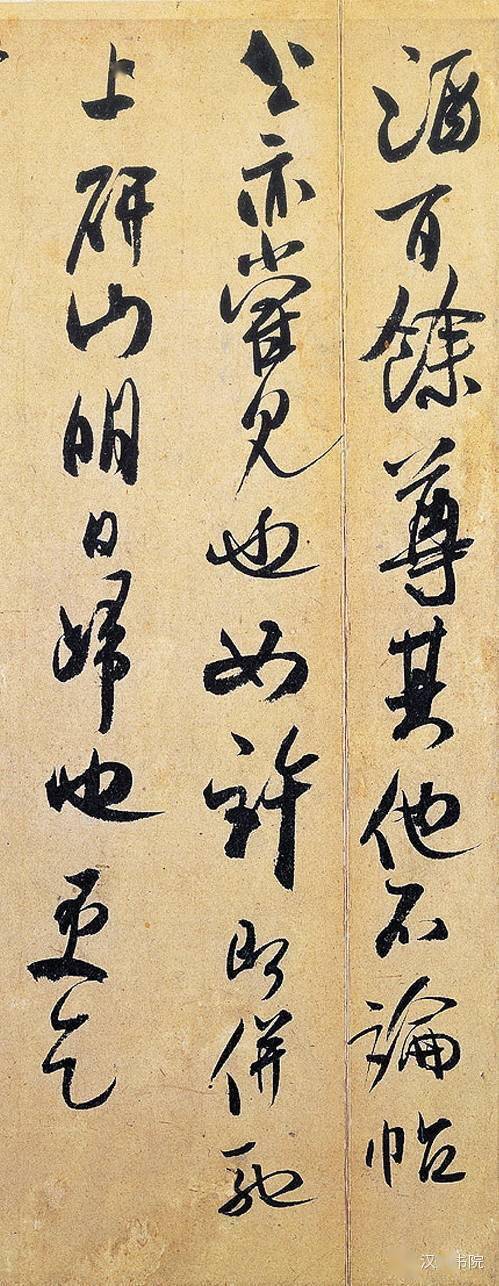 酒百餘尊其他不論帖
公亦嘗見也如許即併馳
上研山明日歸也更乞
汉 书院